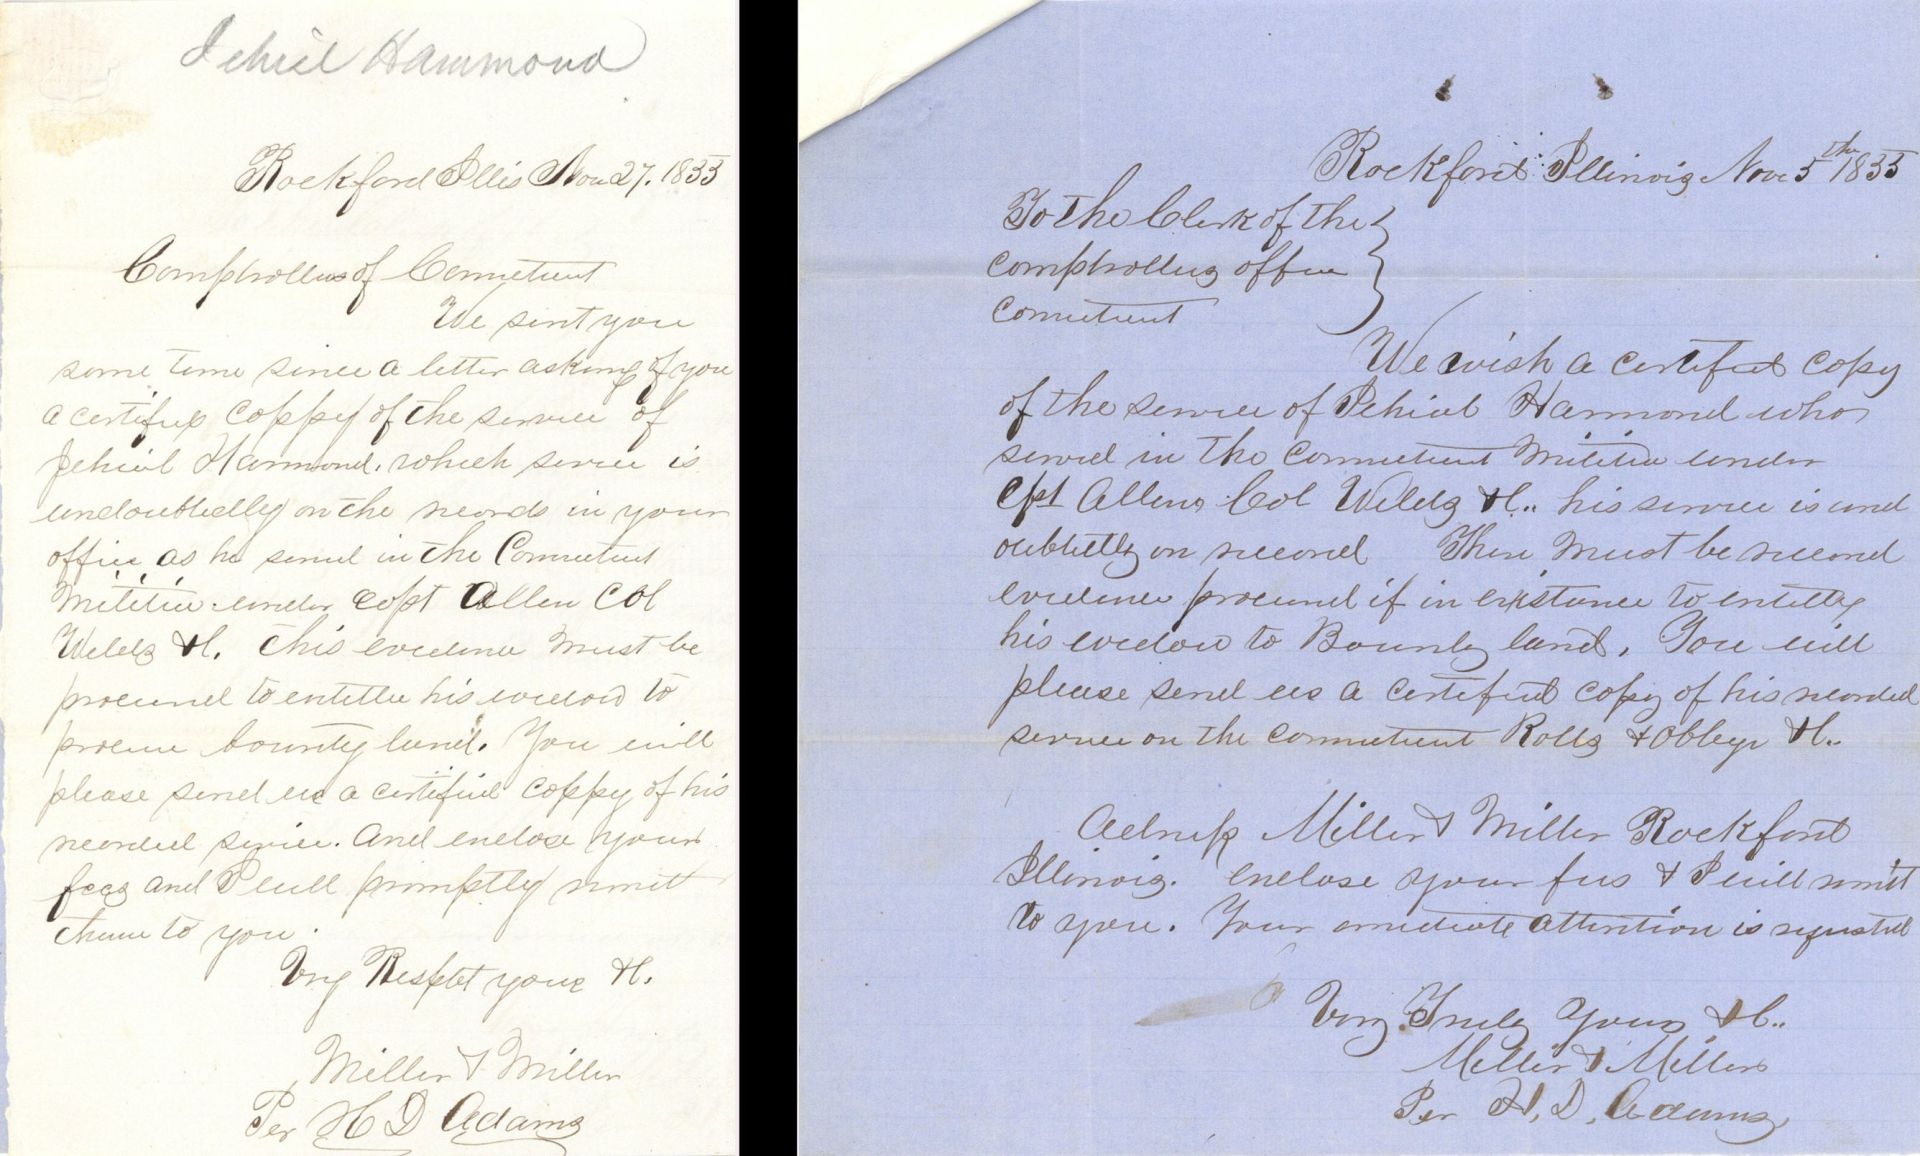 Jehiel Hammond
Rockford Ills Nov 27. 1855
Comptroller of Conneticut
We sent you
some time since a letter asking of you
a certified coppy of the service of
Jehiel Hammond. which service is
undoubtedly on the records in your
office as he served in the Connecticut
Militia under Capt Allen Col
Wells &c. This evidence must be
procured to entitle his widow to
procure bounty land. You will
please send us a certified coppy of his
recorded service. and enclose your
fees and I will promptly remitt
them to you.
Very Respet yours &c.
Miller & Miller
Per H D Adams
Rockford Illinois Nov 5th 1855
To the Clerk of the
comptrollers office
Connecticut
We wish a certified copy
of the service of Jehiel Hammond who
served in the Connecticut Militia under
Cpt Allens Col Wells &c.. his service is und
oubtedly on record There must be record
evidence procured if in existance to entitle
his widow to Bounty land. You will
please send us a certified copy of his recorded
service on the Connecticut Rolls & oblege &c..
Adress Miller & Miller Rockford
Illinois. enclose your fees & I will remit
to you. Your imediate attention is requested
Very Truly Yours &c..
Miller & Miller
Per H. D. Adams